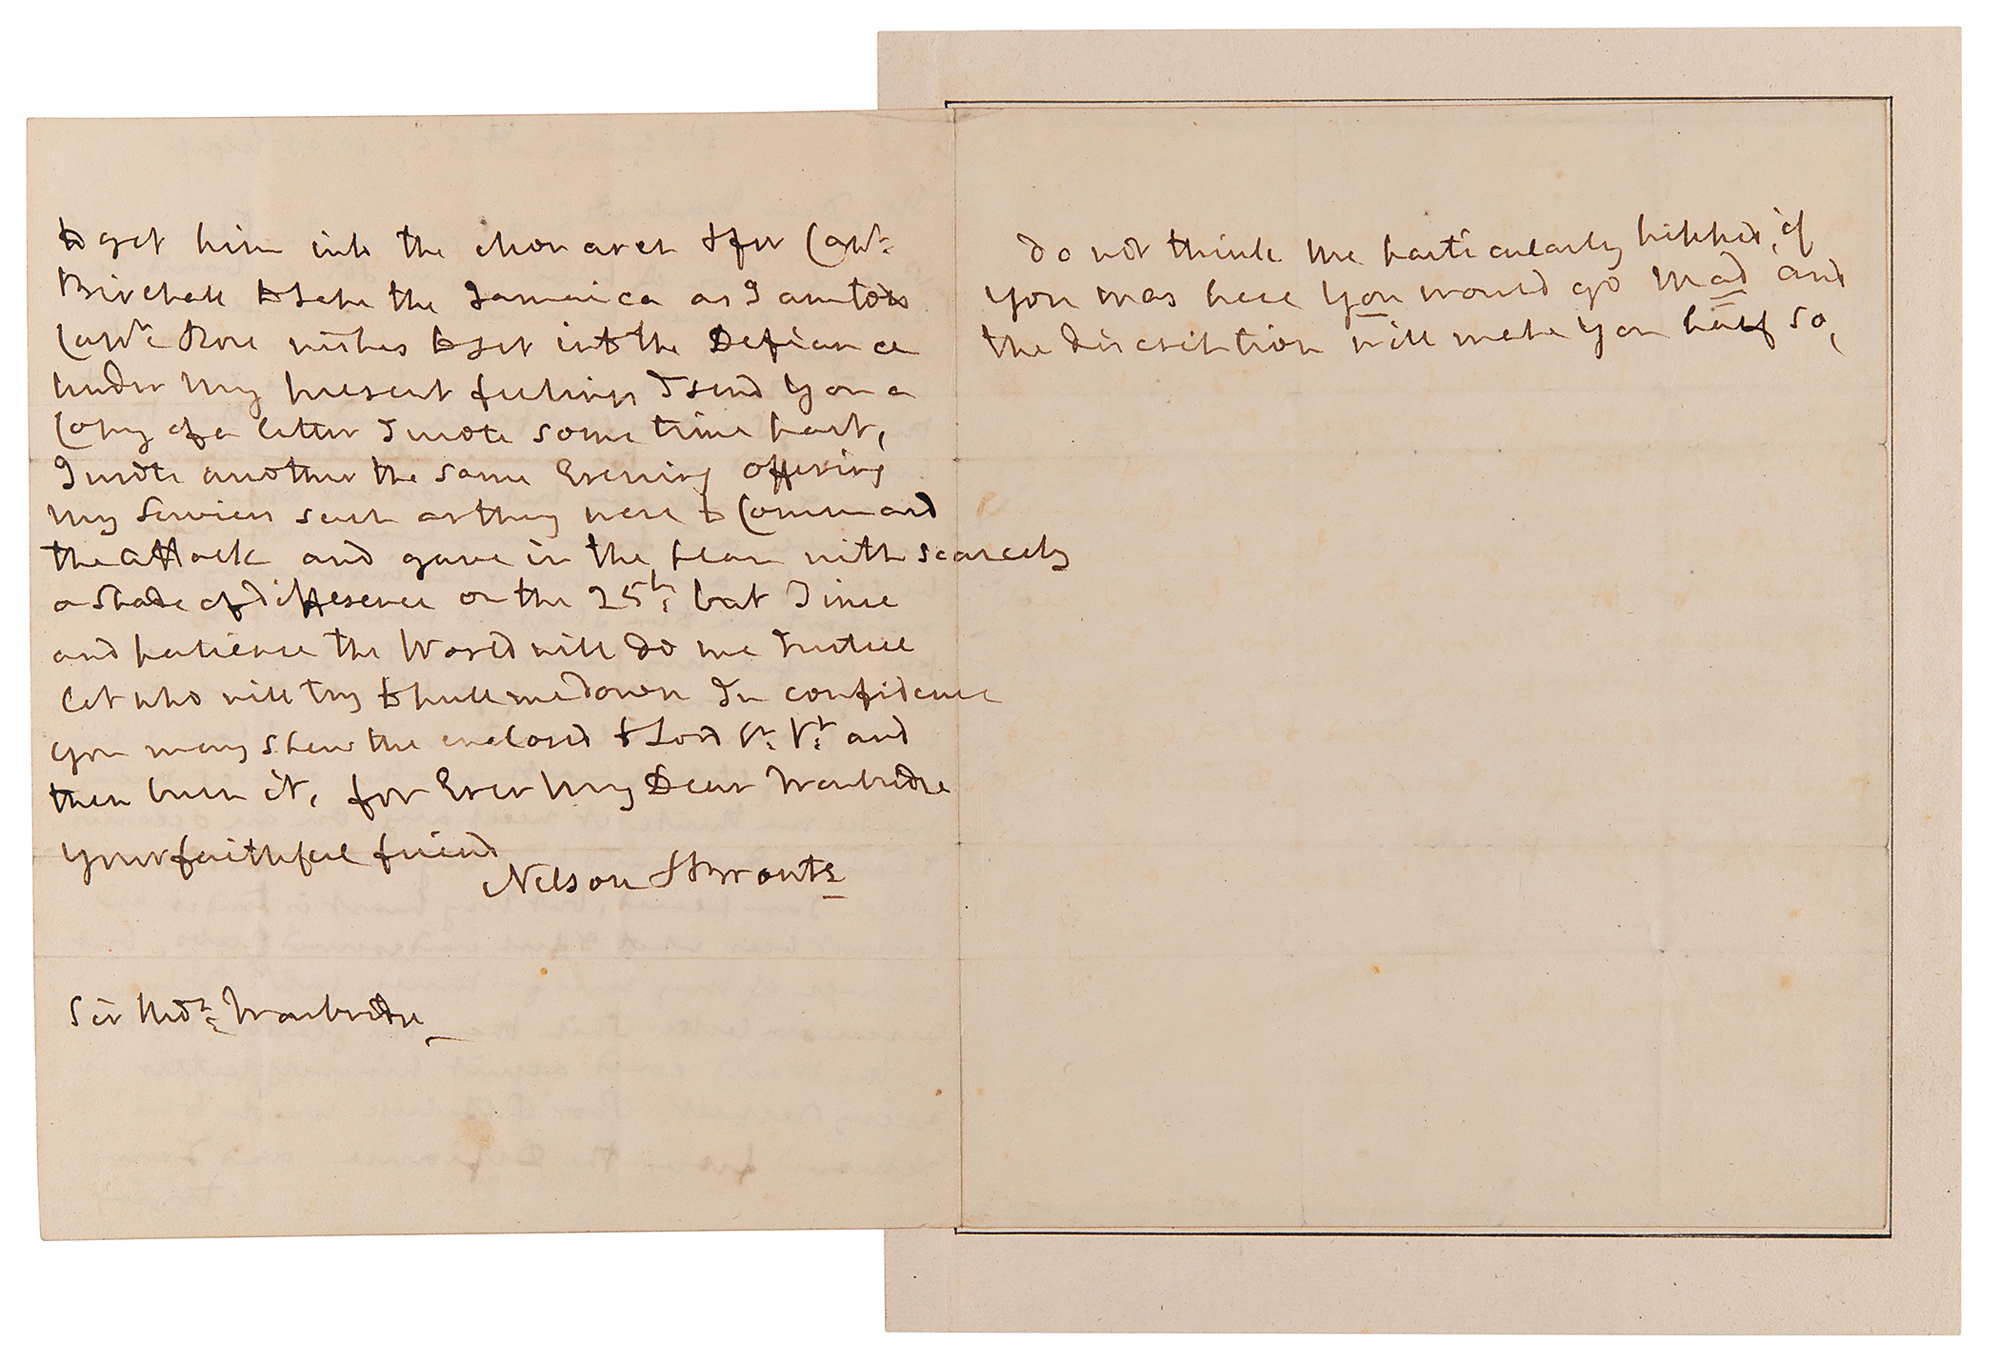 to get him into the Monarch & for Capt:
Birchall to take the Jamaica as I am told
Capt: Rose wishes to get into the Defiance
under my present feelings I send you a
Copy of a letter I wrote some time past,
I wrote another the same Evening offering
my Services such as they were to Command
the attack and gave in the plan with scarcely
a shade of difference on the 25th: but Time
and patience the World will do me Justice
let who will try to pull me down In confidence
you may shew the enclosed to Lord St: Vt: and
then burn it, for Ever My Dear Troubridge
your faithful friend
Nelson & Bronte
Sir Thos: Troubridge
do not think me particularly hipped, if
you was here you would go mad and
the discription will make you half so,